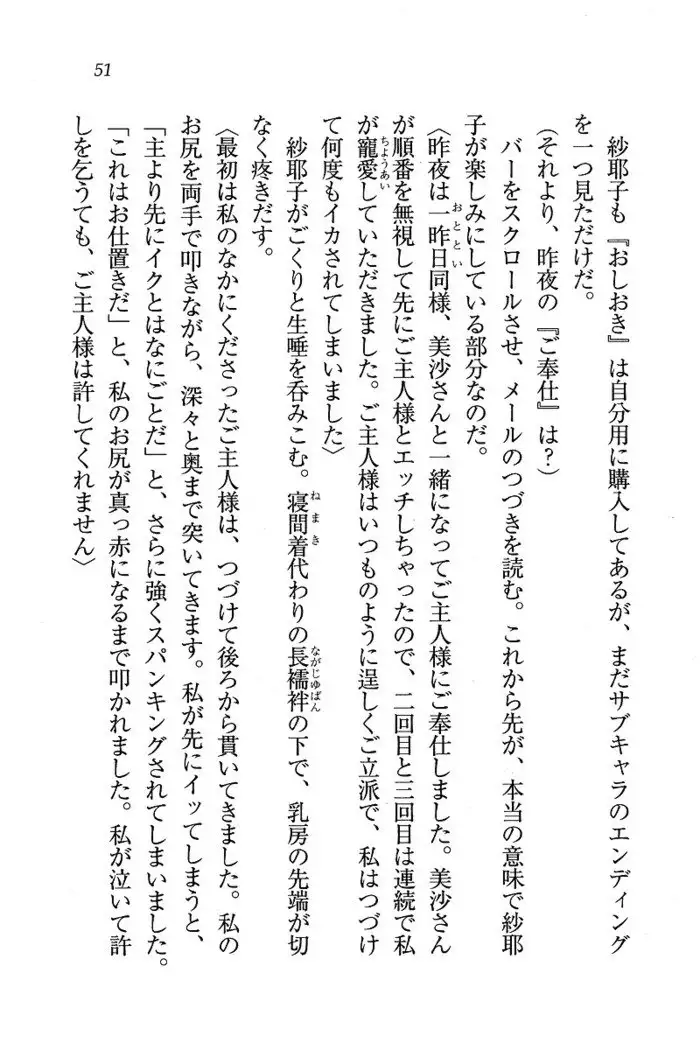 51
紗耶子も『おしおき』は自分用に購入してあるが、まだサブキャラのエンディング
を一つ見ただけだ。
(それより、昨夜の『ご奉仕』は?)
バーをスクロールさせ、メールのつづきを読む。これから先が、本当の意味で紗耶
子が楽しみにしている部分なのだ。
〈昨夜は一昨日同様、美沙さんと一緒になってご主人様にご奉仕しました。美沙さん
が順番を無視して先にご主人様とエッチしちゃったので、二回目と三回目は連続で私
が寵愛していただきました。ご主人様はいつものように逞しくご立派で、私はつづけ
て何度もイカされてしまいました〉
紗耶子がごくりと生唾を呑みこむ。寝間着代わりの長襦袢の下で、乳房の先端が切
なく疼きだす。
〈最初は私のなかにくださったご主人様は、つづけて後ろから貫いてきました。私の
お尻を両手で叩きながら、深々と奥まで突いてきます。私が先にイッてしまうと、
「主より先にイクとはなにごとだ」と、さらに強くスパンキングされてしまいました。
「これはお仕置きだ」と、私のお尻が真っ赤になるまで叩かれました。私が泣いて許
しを乞うても、ご主人様は許してくれません〉